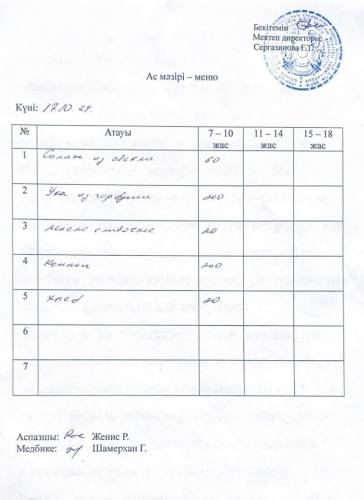 Бекітемін
Мектеп директоры:
Сергазинова Г.Т.
Ас мәзірі – меню
Күні: 17.10.24.
№ Атауы 7 – 10 жас 11 – 14 жас 15 – 18 жас
1 Салат из свеклы 60
2 Уха из горбуши 200
3 масло сливочное 20
4 Компот 200
5 хлеб 20
6
7
Аспазшы: Женис Р.
Медбике: Шамерхан Г.